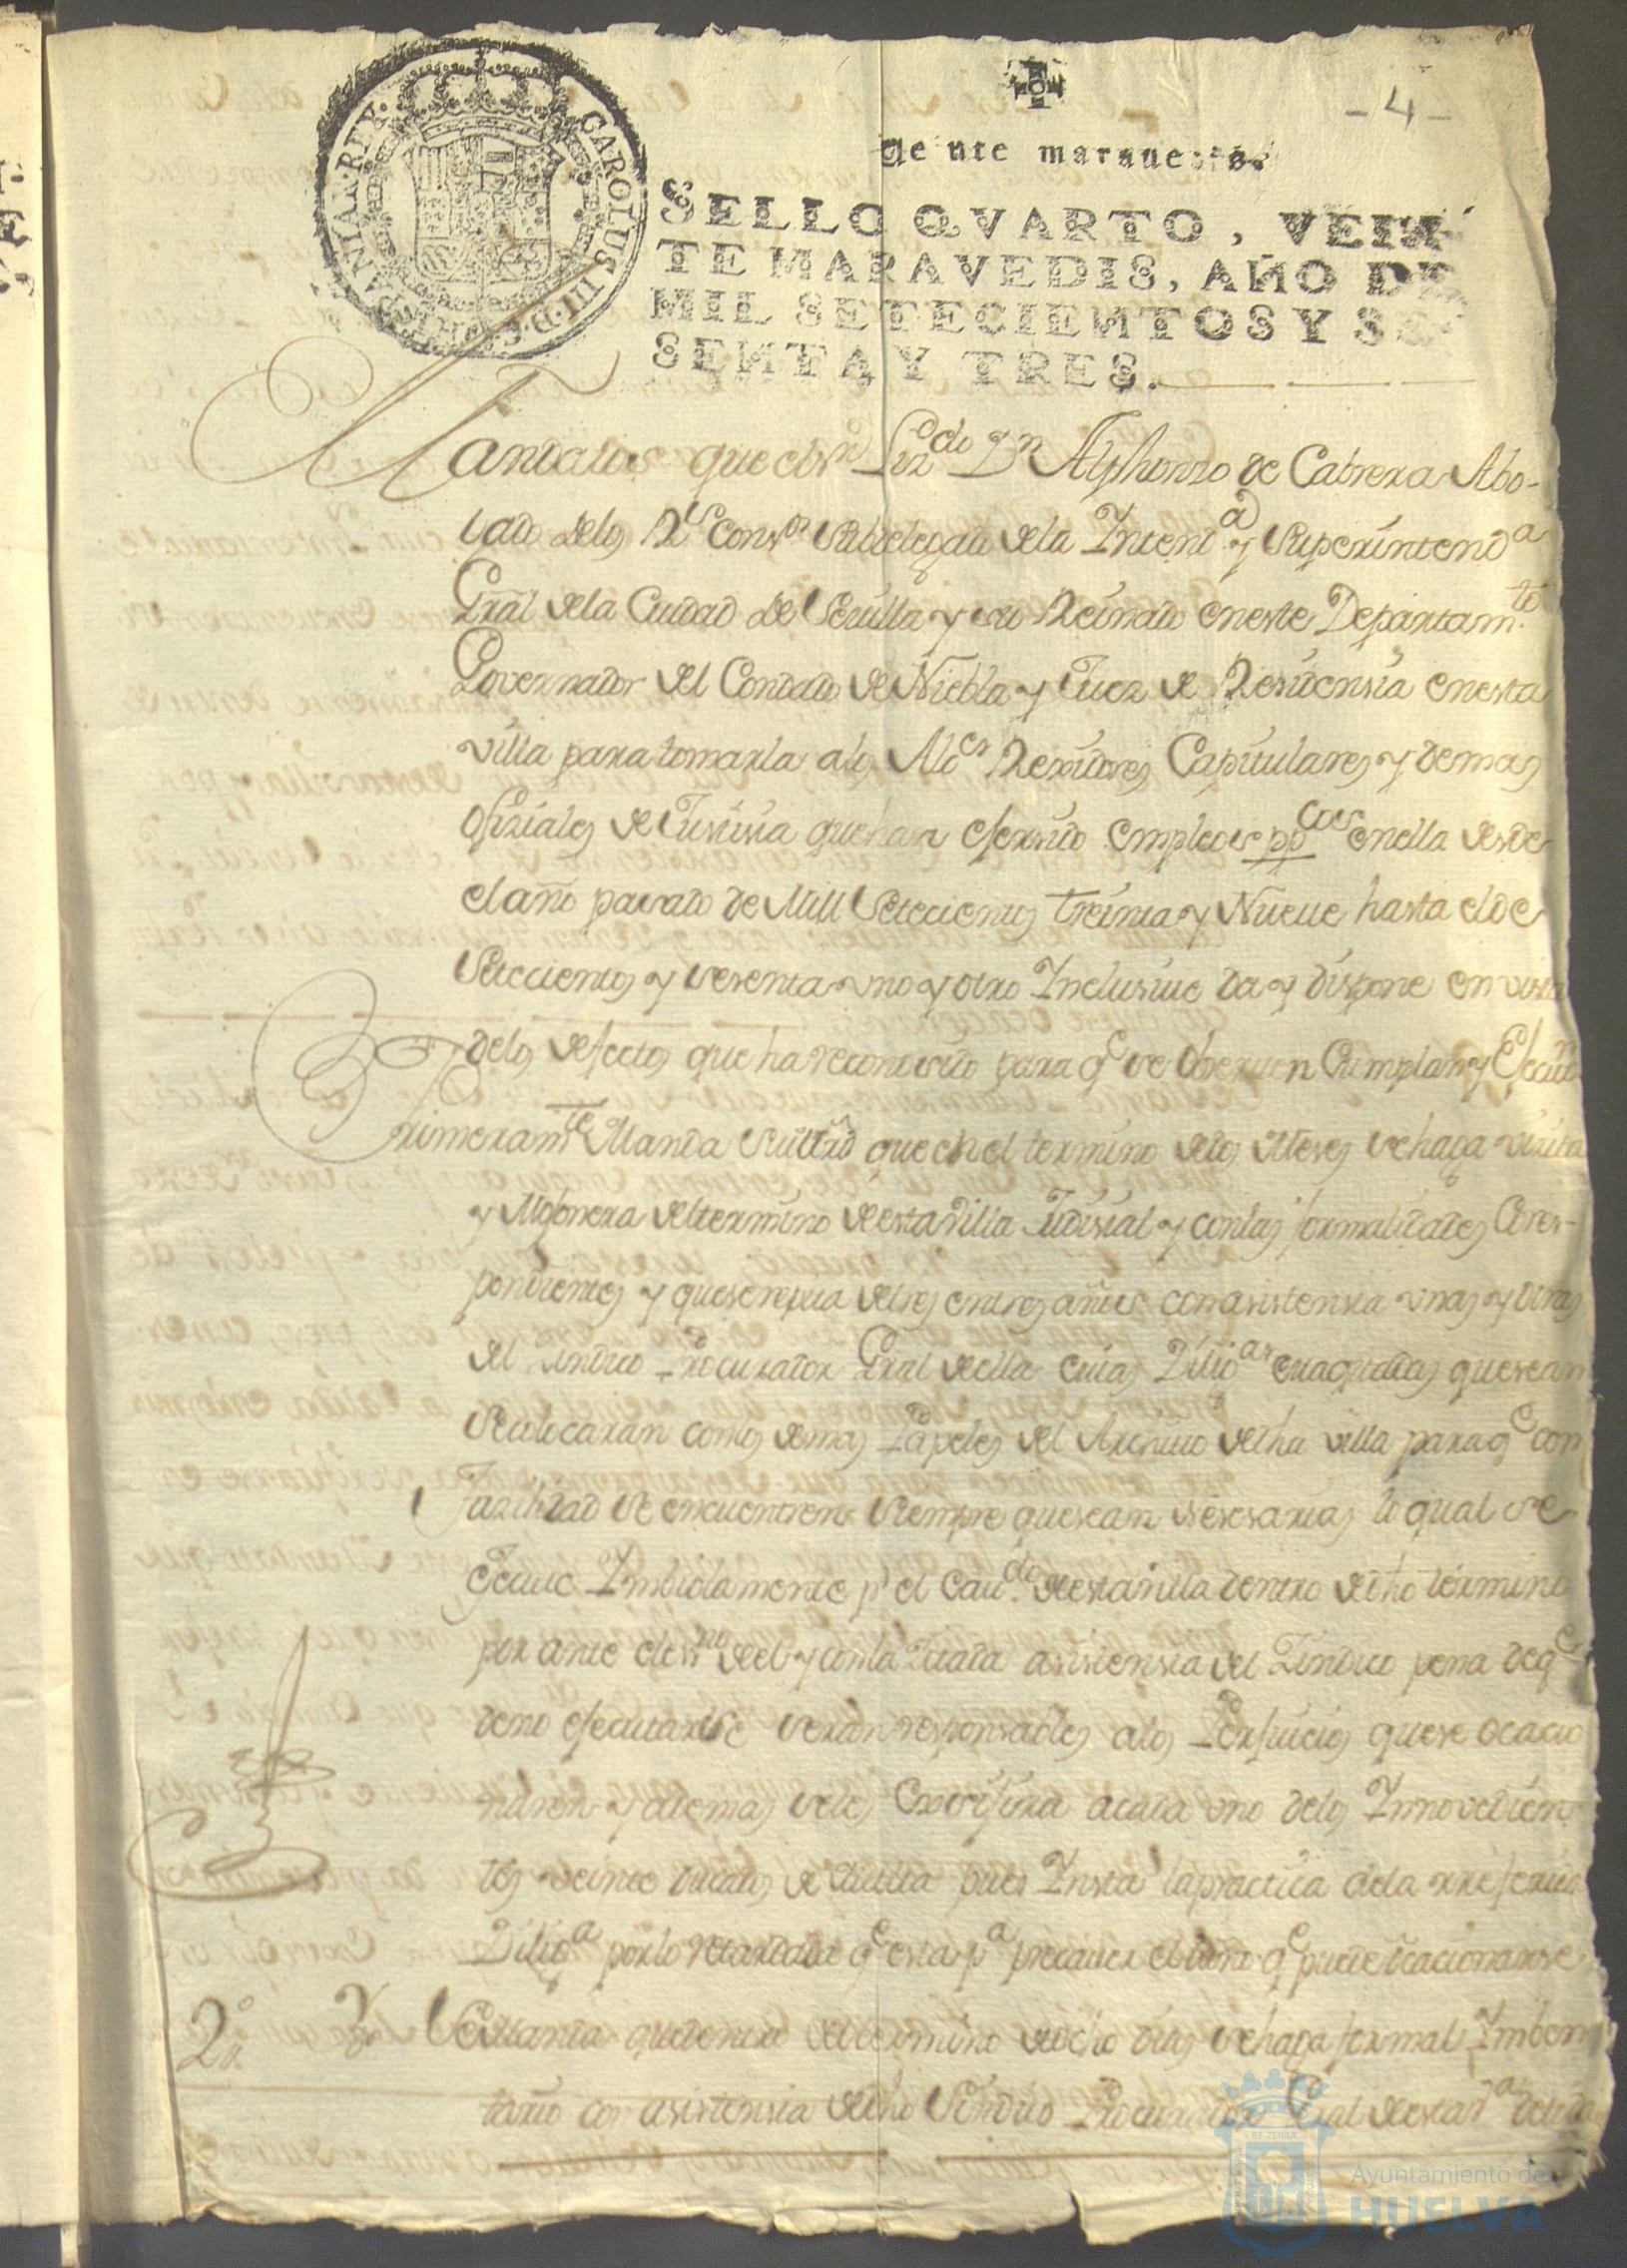 - 4 -
CAROLUS III D. G. HISPANIAR. REX.
Veinte maravedis.
SELLO QVARTO, VEIN
TE MARAVEDIS, AÑO DE
MIL SETECIENTOS Y SE
SENTA Y TRES.
Mandatos que el sr Lizdo Dn Alphonso de Cabrera Abo-
gado delos Rs Consos Subdelegado dela Intenda y Superintenda
Gral dela Ciudad de Sevilla y su Reinado en este Departamto
Governador del Condado de Niebla y Juez de Residensia en esta
villa para tomarla alos Alces Rexidores Capitulares y demas
ofiziales de Justisia que han esersido empleos ppcos en ella desde
el año pasado de Mill Setecientos treinta y Nueve hasta el de
Setecientos y sesenta uno y otro Inclusive da y dispone en vista
delos defectos que ha reconosido para qe se observen Cumplan y Executen
Primeramte Manda su mrd que en el termino de dos Meses se haga visita
y Mojonera del termino de esta villa Judisial y con las formalidades Corres-
pondientes y que se repita de tres en tres años con asistensia unas y otras
del Sindico Procurador Gral de ella cuias Diligas evaquadas que sean
se colocaran con los demas Papeles del Archivo de dha villa para qe con
fazilidad se encuentren siempre que sean nesesarias lo qual se
execute Imbiolamente pr el Cavdo de esta villa dentro de dho termino
por ante el essno de el y con la zitada asistensia del Zindico pena de qe
de no esecutarse seran responsables alos Perjuicios que se ocacio
naren y ademas se les exsijira a cada uno delos Innovedien
tes veinte ducados de multa pues Insta la practica de la rreferida
Diliga por lo retardada qe esta pa precaver el daño qe puede ocacionarse
2o Yt Se manda que dentro del termino de ocho dias se haga formal Imben
tario con asistensia de dho Sindico Procurador Gral de esta va de todos
Ayuntamiento de
HUELVA